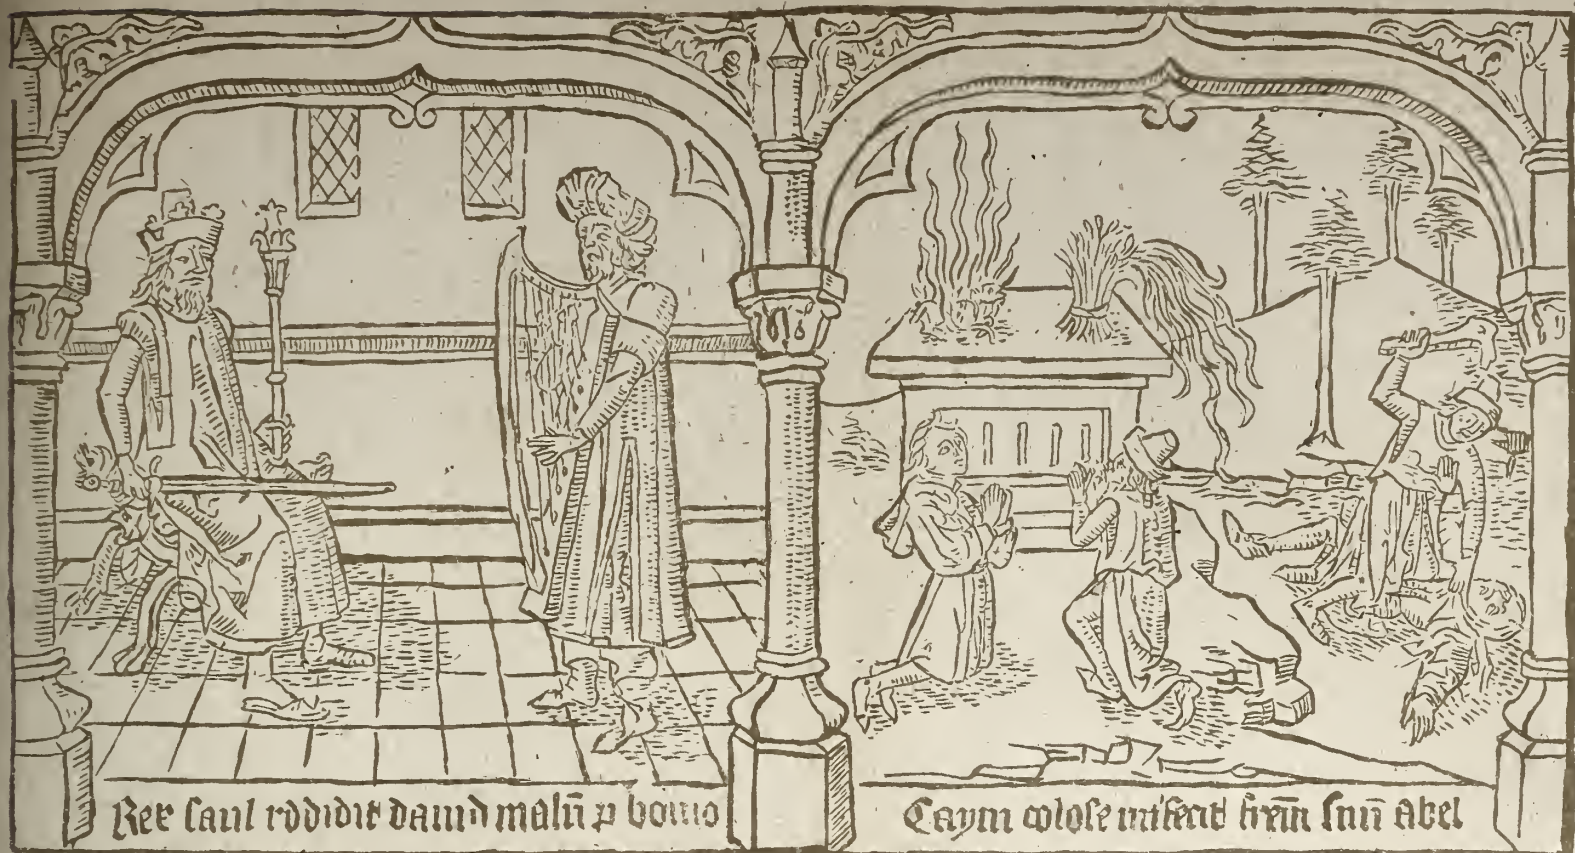 Rex saul reddidit dauid malū p bono
Caym dolose interfecit frēm suū Abel